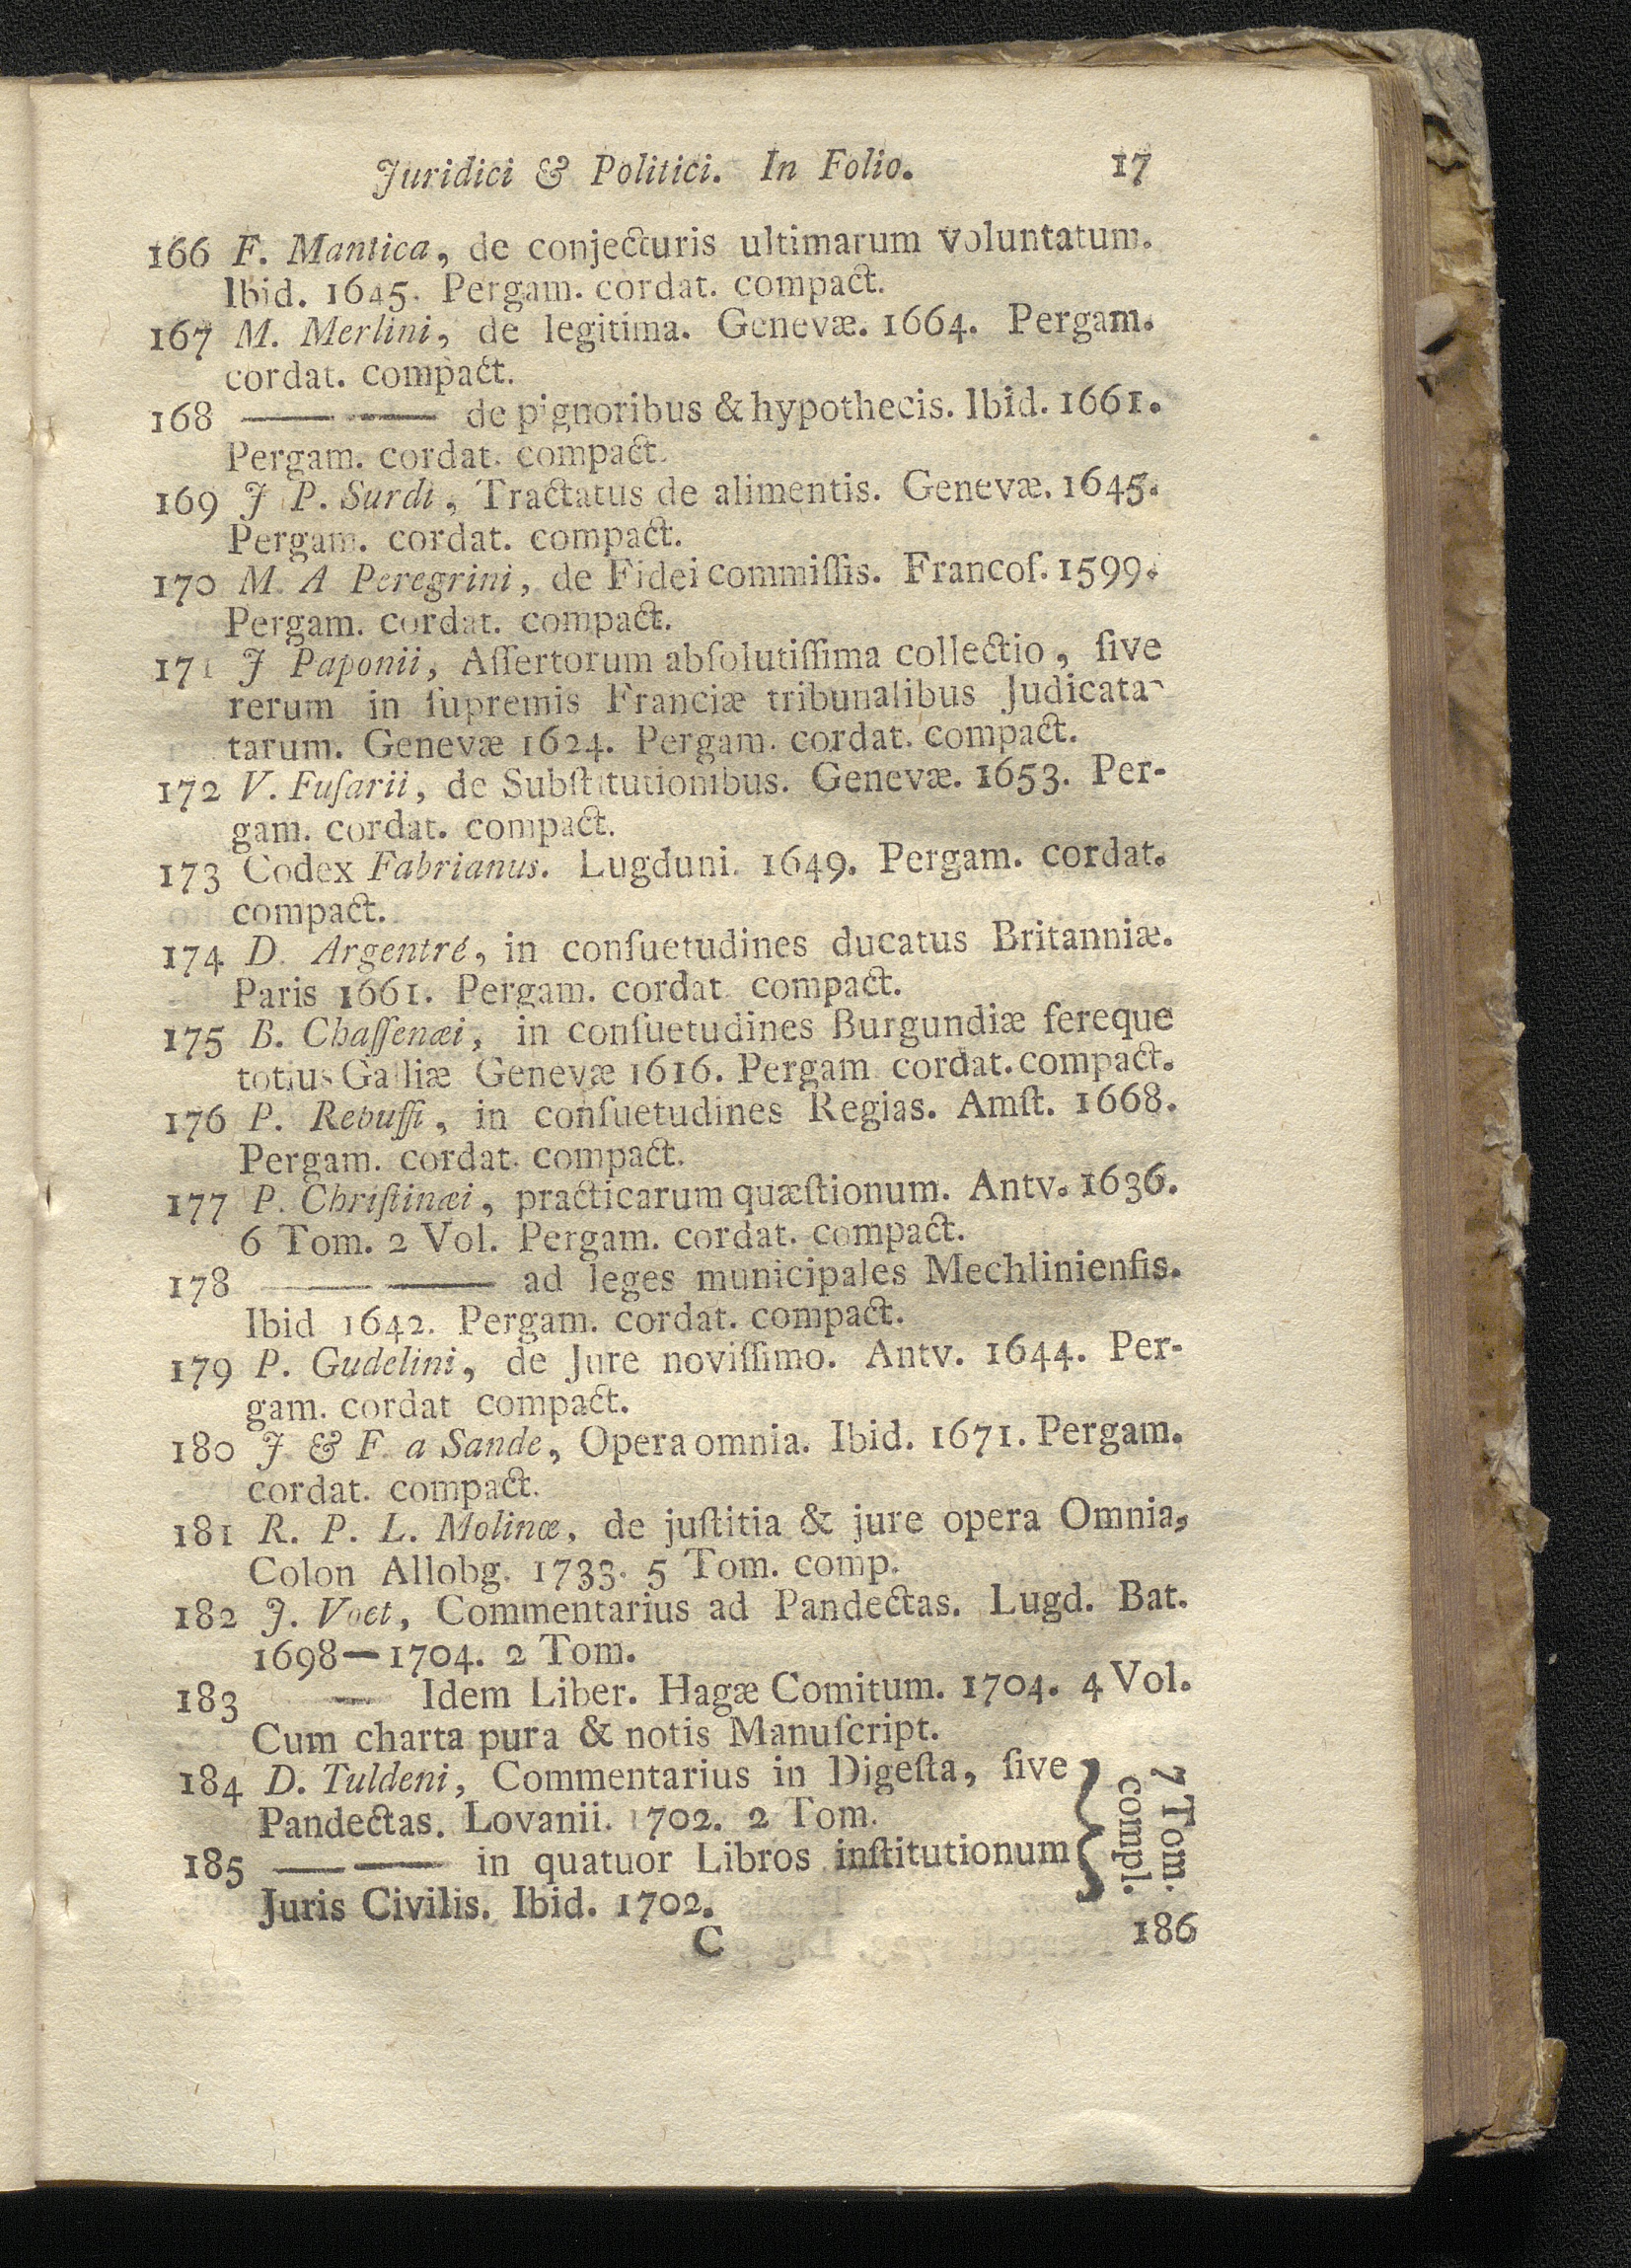 Juridici & Politici. In Folio. 17
166 F. Mantica, de conjecturis ultimarum voluntatum.
Ibid. 1645. Pergam. cordat. compact.
167 M. Merlini, de legitima. Genevæ. 1664. Pergam.
cordat. compact.
168 —— —— de pignoribus & hypothecis. Ibid. 1661.
Pergam. cordat. compact.
169 J P. Surdi, Tractatus de alimentis. Genevæ. 1645.
Pergam. cordat. compact.
170 M. A Peregrini, de Fidei commiſſis. Francof. 1599.
Pergam. cordat. compact.
171 J Paponii, Aſſertorum abſolutiſſima collectio, ſive
rerum in ſupremis Franciæ tribunalibus Judicata-
tarum. Genevæ 1624. Pergam. cordat. compact.
172 V. Fuſarii, de Subſtitutionibus. Genevæ. 1653. Per-
gam. cordat. compact.
173 Codex Fabrianus. Lugduni. 1649. Pergam. cordat.
compact.
174 D. Argentré, in conſuetudines ducatus Britanniæ.
Paris 1661. Pergam. cordat. compact.
175 B. Chaſſenæi, in conſuetudines Burgundiæ fereque
totius Galliæ Genevæ 1616. Pergam cordat. compact.
176 P. Rebuſſi, in conſuetudines Regias. Amſt. 1668.
Pergam. cordat. compact.
177 P. Chriſtinæi, practicarum quæſtionum. Antv. 1636.
6 Tom. 2 Vol. Pergam. cordat. compact.
178 —— —— ad leges municipales Mechlinienſis.
Ibid 1642. Pergam. cordat. compact.
179 P. Gudelini, de Jure noviſſimo. Antv. 1644. Per-
gam. cordat compact.
180 J. & F. a Sande, Opera omnia. Ibid. 1671. Pergam.
cordat. compact.
181 R. P. L. Molinæ, de juſtitia & jure opera Omnia,
Colon Allobg. 1733. 5 Tom. comp.
182 J. Voet, Commentarius ad Pandectas. Lugd. Bat.
1698—1704. 2 Tom.
183 — Idem Liber. Hagæ Comitum. 1704. 4 Vol.
Cum charta pura & notis Manuſcript.
184 D. Tuldeni, Commentarius in Digeſta, ſive
Pandectas. Lovanii. 1702. 2 Tom.
185 —— —— in quatuor Libros inſtitutionum
Juris Civilis. Ibid. 1702.
7 Tom.
compl.
C 186